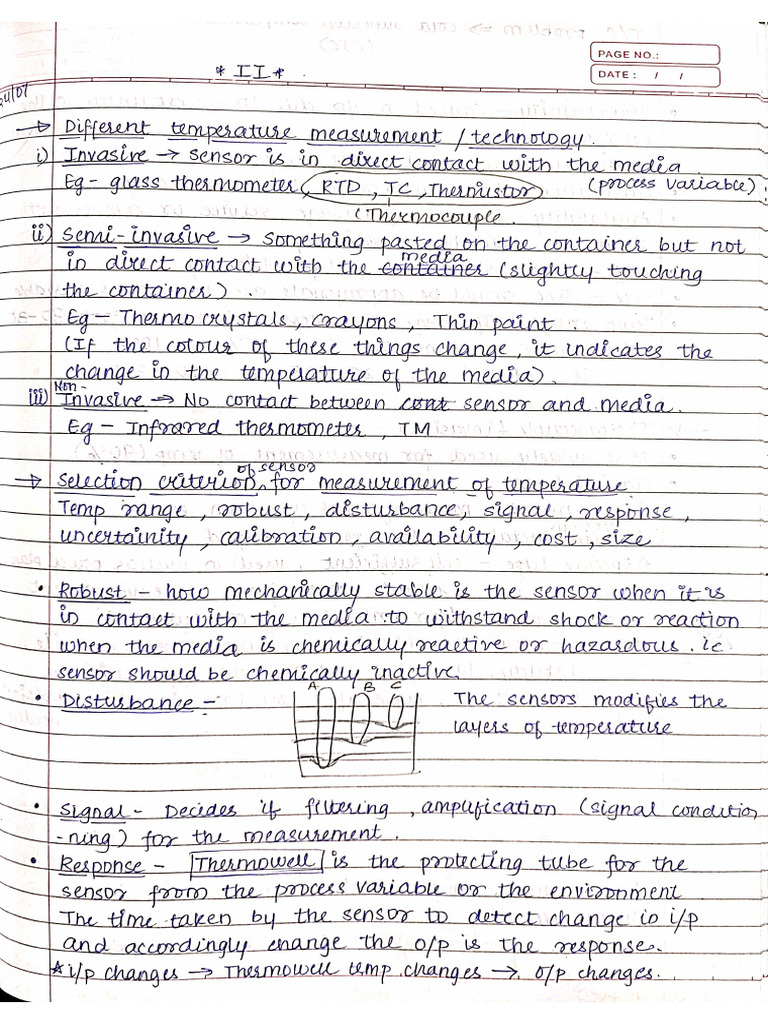 PAGE NO.:
DATE: / /
* II *
24/07
→ Different temperature measurement / technology.
i) Invasive → Sensor is in direct contact with the media
Eg - glass thermometer, RTD, TC, Thermistor (process variable)
(Thermocouple.
ii) Semi-invasive → Something pasted on the container but not
in direct contact with the container media (slightly touching
the container).
Eg - Thermo crystals, crayons, Thin paint.
(If the colour of these things change, it indicates the
change in the temperature of the media).
iii) Non-Invasive → No contact between cont sensor and media.
Eg - Infrared thermometer, TM
→ Selection criterion of sensor for measurement of temperature
Temp range, robust, disturbance, signal, response,
uncertainity, calibration, availability, cost, size
• Robust - how mechanically stable is the sensor when it is
in contact with the media to withstand shock or reaction
when the media is chemically reactive or hazardous. ie
sensor should be chemically inactive.
• Disturbance - A B C The sensors modifies the
layers of temperature
• Signal - Decides if filtering, amplification (signal condition
-ning) for the measurement.
• Response - Thermowell is the protecting tube for the
sensor from the process variable or the environment
The time taken by the sensor to detect change in i/p
and accordingly change the o/p is the response.
* i/p changes → Thermowell temp changes → o/p changes.